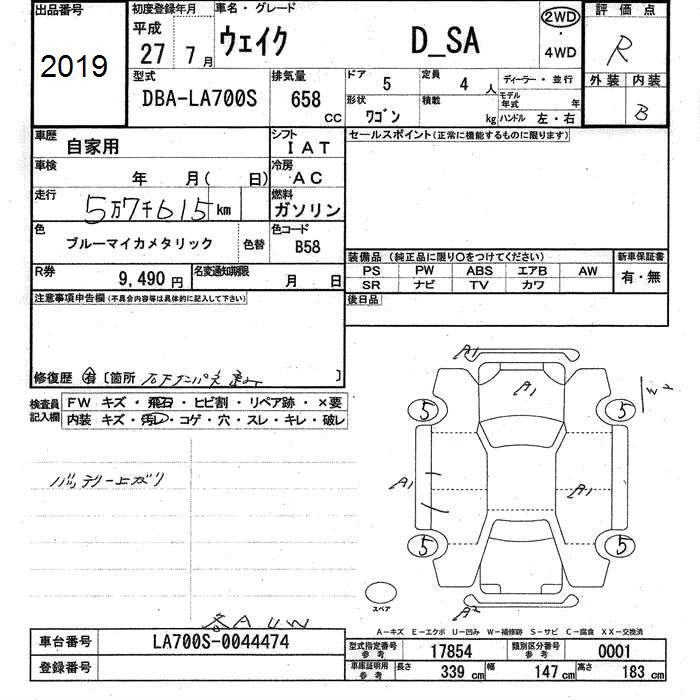 出品番号
2019
初度登録年月
平成
27年 7月
車名・グレード
ウェイク D_SA
2WD
・
4WD
評価点
R
外装 内装
B
型式
DBA-LA700S
排気量
658 cc
ドア
5
定員
4 人
ディーラー・並行
形状
ワゴン
積載
kg
モデル年式 年
ハンドル 左・右
車歴
自家用
シフト
IAT
セールスポイント(正常に機能するものに限ります)
車検
年 月( 日)
冷房
AC
走行
5万7千615km
燃料
ガソリン
色
ブルーマイカメタリック
色替
色コード
B58
R券
9,490 円
名変通知期限
月 日
装備品 (純正品に限り○をつけてください)
PS PW ABS エアB AW
SR ナビ TV カワ
新車保証書
有・無
後日品
注意事項申告欄(不具合内容等は具体的に記入して下さい)
修復歴 有 〔箇所 〕
検査員記入欄
FW キズ・飛石・ヒビ割・リペア跡・×要
内装 キズ・汚レ・コゲ・穴・スレ・キレ・破レ
バッテリー上がり
A1
A1
5
5
A1
A1
5
5
A2
スペア
A U W
A-キズ E-エクボ U-凹み W-補修跡 S-サビ C-腐食 XX-交換済
車台番号
LA700S-0044474
登録番号
型式指定番号 参考
17854
類別区分番号 参考
0001
車庫証明用 参考
長さ 339 cm
幅 147 cm
高さ 183 cm